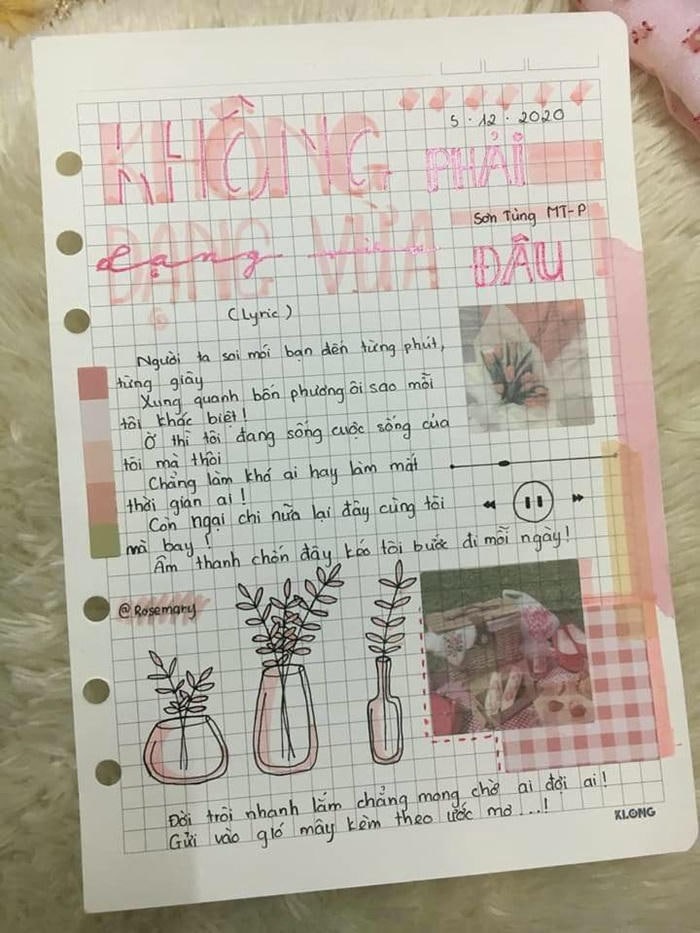 5.12.2020
KHÔNG PHẢI
Sơn Tùng MT-P
DẠNG VỪA ĐÂU
(Lyric)
Người ta soi mói bạn đến từng phút,
từng giây
Xung quanh bốn phương ôi sao mỗi
tôi khác biệt!
Ở thì tôi đang sống cuộc sống của
tôi mà thôi
Chẳng làm khó ai hay làm mất
thời gian ai!
Còn ngại chi nữa lại đây cùng tôi
mà bay!
Âm thanh chốn đây kéo tôi bước đi mỗi ngày!
@Rosemary
Đời trôi nhanh lắm chẳng mong chờ ai đợi ai!
Gửi vào gió mây kèm theo ước mơ...!
KLONG